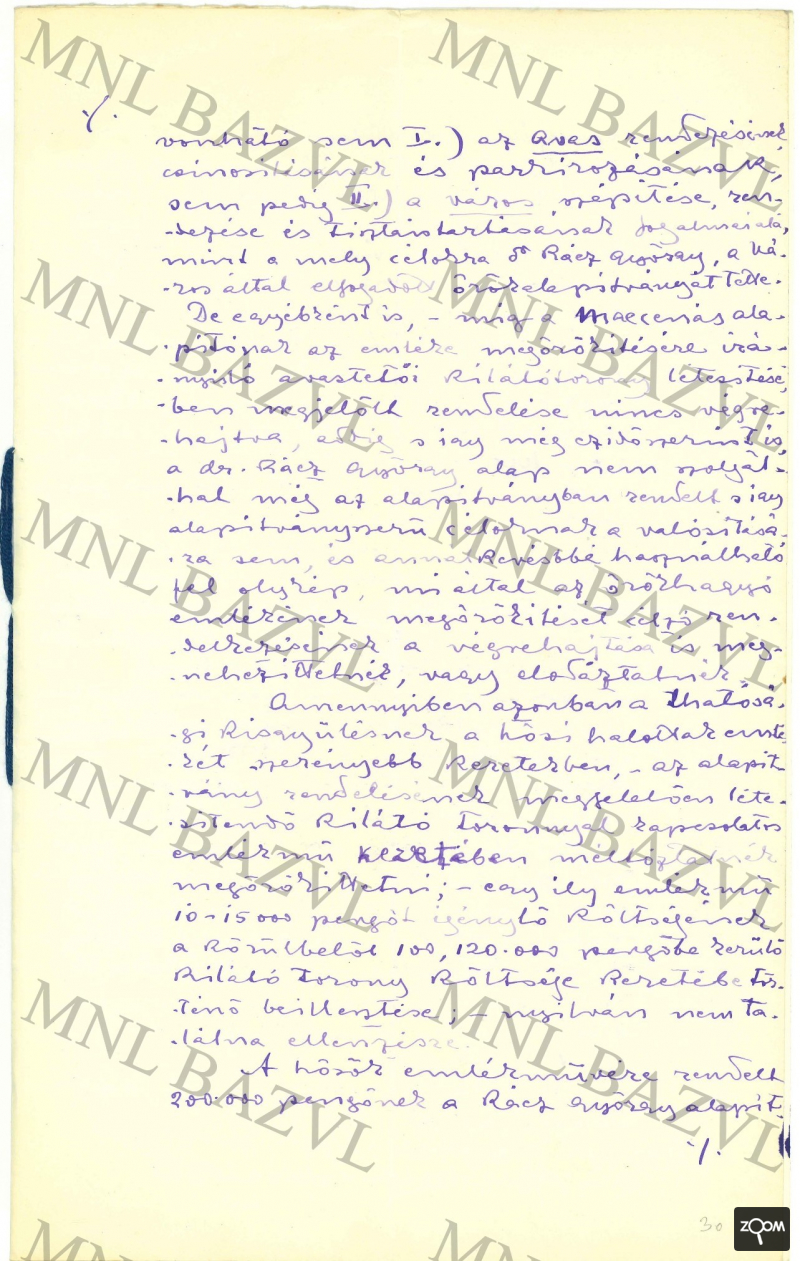 ·/.
vonható sem I.) az Avas rendezésének
csinositásának és parkirozásának,
sem pedig II.) a város szépitése, ren-
-dezése és tisztántartásának fogalmai alá,
mint a mely célokra dr Rácz György, a vá-
-ros által elfogadott örökalapitványát tette.
De egyébként is, - mig a Maecenás ala-
-pitónak az emléke megörökitésére irá-
-nyuló avastetői Kilátótorony létesitésé,
-ben megjelölt rendelése nincs végre-
-hajtva, addig s igy még ezidőszerint is,
a dr. Rácz György alap nem szolgál-
-hat még az alapitványban rendelt s igy
alapitványszerű céloknak a valósitásá-
-ra sem, és annál kevésbbé használható
fel olykép, mi által az örökhagyó
emlékének megörökitését célzó ren-
-delkezésének a végrehajtása is meg-
-nehezittetnék, vagy elodáztatnék.
Amennyiben azonban a thatósá-
-gi Kisgyülésnek a hősi halottak emlé-
-két szerényebb Keretekben, - az alapit
-vány rendelésének megfelelően léte-
-sitendő Kilátó toronnyal kapcsolatos
emlékmű Keretében méltóztatnék
megörökittetni; - egy ily emlékmű
10-15000 pengőt igénylő Költségének
a Körülbelől 100, 120.000 pengőbe kerülő
Kilátó torony Költsége Keretébe tör-
-ténő beillesztése; - nyilván nem ta-
-lálna ellenzésre.
A hősök emlékművére rendelt
200.000 pengőnek a Rácz György alapit-
·/.
30
ZOOM
MNL BAZVL